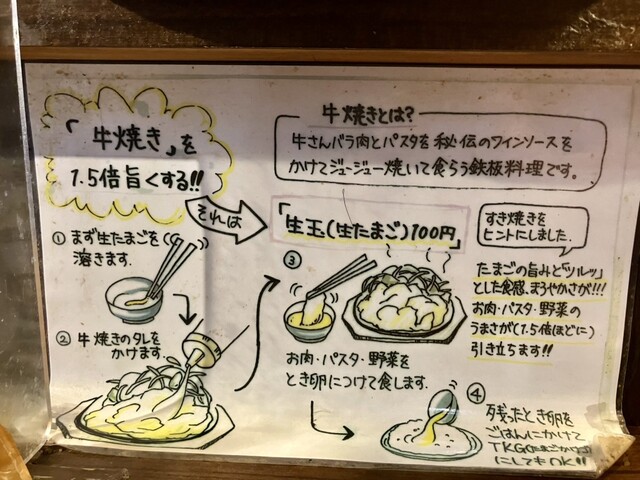 「牛焼き」を
1.5倍旨くする!!
それは
牛焼きとは?
牛さんバラ肉とパスタを秘伝のワインソースを
かけてジュージュー焼いて食らう鉄板料理です。
「生玉(生たまご)100円」
すき焼きを
ヒントにしました。
① まず生たまごを
溶きます.
② 牛焼きのタレを
かけます
③
お肉・パスタ・野菜を
とき卵につけて食します.
たまごの旨みと「ツルッ」
とした食感、まろやかさが!!!
お肉・パスタ・野菜の
うまさが(1.5倍ほどに)
引き立ちます!!
④
残ったとき卵を
ごはんにかけて
TKG(たまごかけ
にしてもOK!!